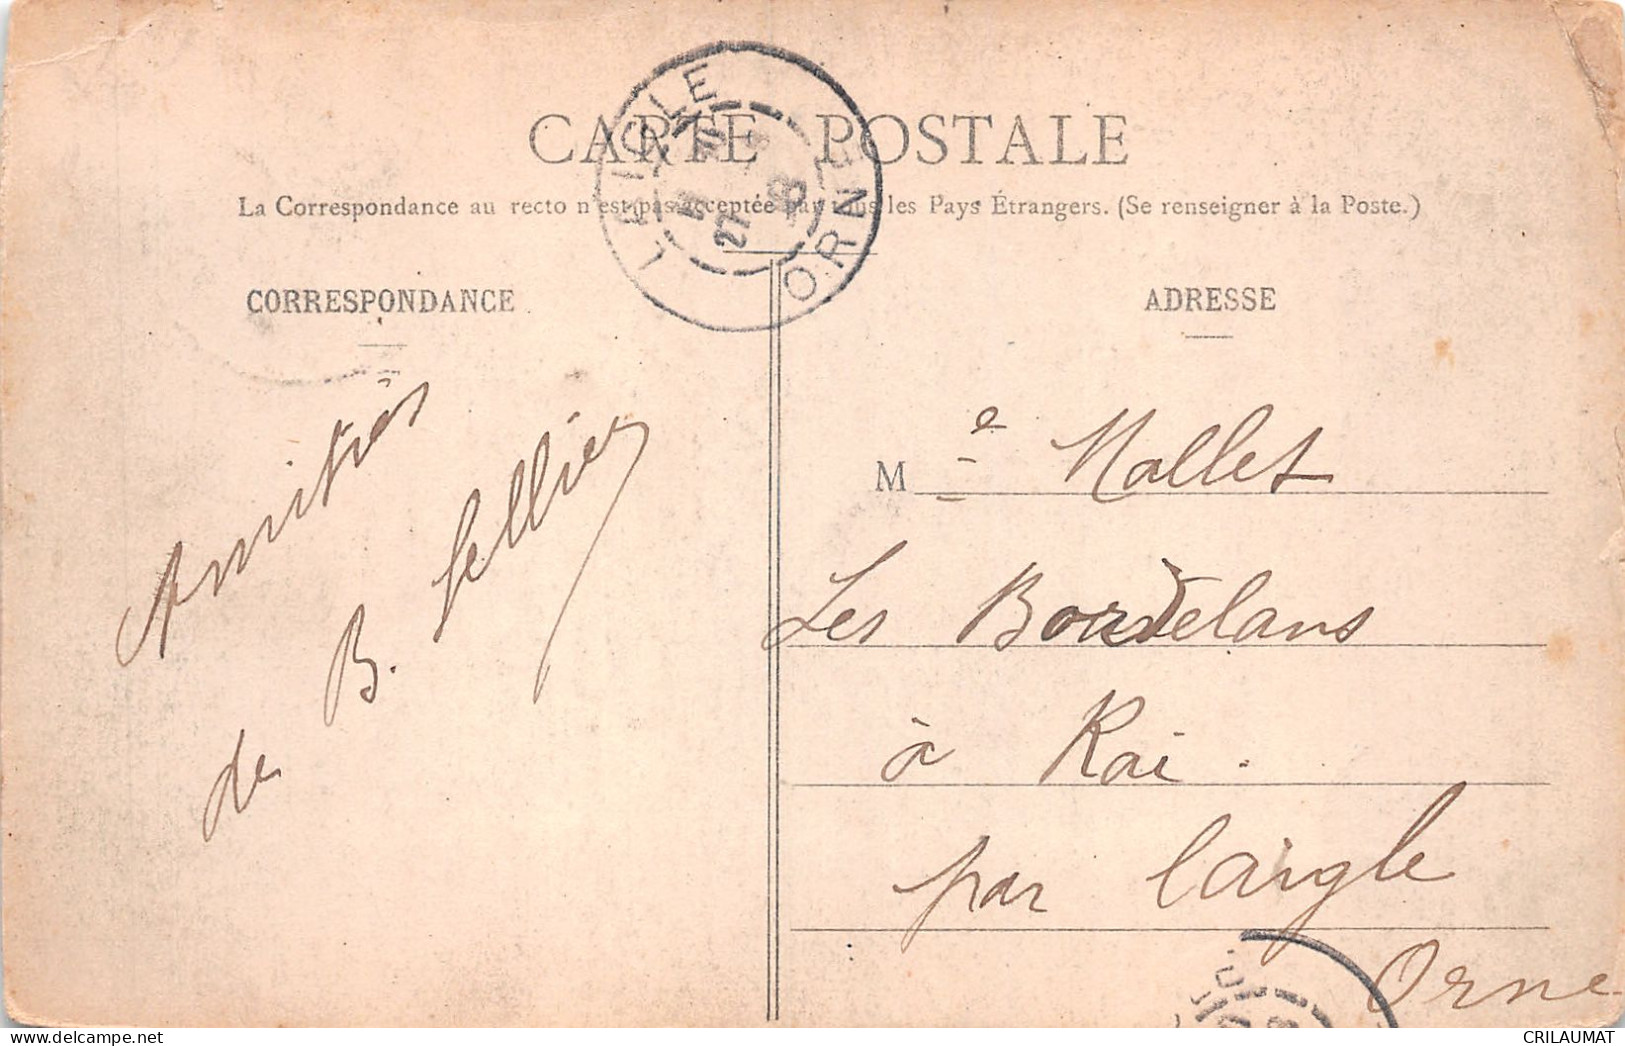 CARTE POSTALE
La Correspondance au recto n'est pas acceptée par tous les Pays Étrangers. (Se renseigner à la Poste.)
LAIGLE
ORNE
27
CORRESPONDANCE
ADRESSE
Amitiés
de B. Sellier
M e Mallet
Les Bordelans
à Rai.
par l'aigle
Orne
CRILAUMAT